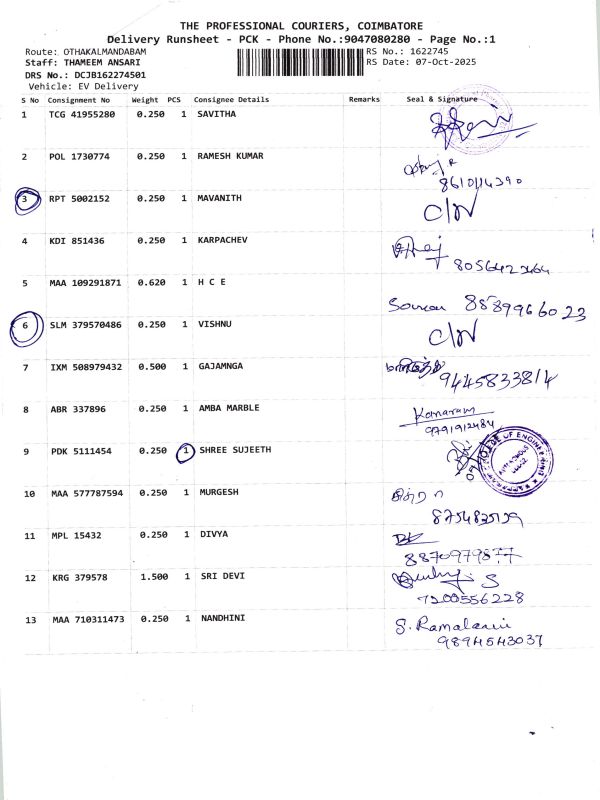 THE PROFESSIONAL COURIERS, COIMBATORE
Delivery Runsheet - PCK - Phone No.:9047080280 - Page No.:1
Route: OTHAKALMANDABAM RS No.: 1622745
Staff: THAMEEM ANSARI RS Date: 07-Oct-2025
DRS No.: DCJB162274501
Vehicle: EV Delivery
S No Consignment No Weight PCS Consignee Details Remarks Seal & Signature
1 TCG 41955280 0.250 1 SAVITHA
2 POL 1730774 0.250 1 RAMESH KUMAR
3 RPT 5002152 0.250 1 MAVANITH C/N
4 KDI 851436 0.250 1 KARPACHEV
5 MAA 109291871 0.620 1 H C E
8889966023
6 SLM 379570486 0.250 1 VISHNU C/N
7 IXM 508979432 0.500 1 GAJAMNGA
9445833814
8 ABR 337896 0.250 1 AMBA MARBLE
9791912484
9 PDK 5111454 0.250 1 SHREE SUJEETH
10 MAA 577787594 0.250 1 MURGESH
11 MPL 15432 0.250 1 DIVYA
8870979877
12 KRG 379578 1.500 1 SRI DEVI
7200556228
13 MAA 710311473 0.250 1 NANDHINI
9894543037